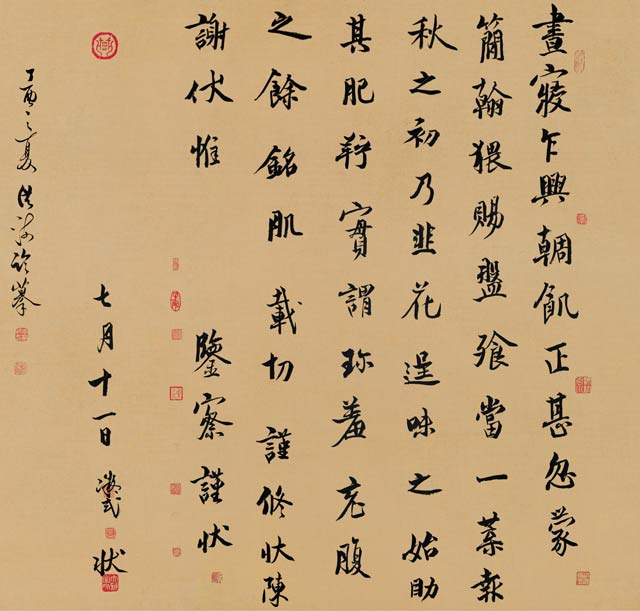 晝寢乍興輖飢正甚忽蒙
簡翰猥賜盤飧當一葉報
秋之初乃韭花逞味之始助
其肥羜實謂珍羞充腹
之餘銘肌載切謹修狀陳
謝伏惟 鑒察謹狀
七月十一日凝式狀
丁酉之夏臨摹